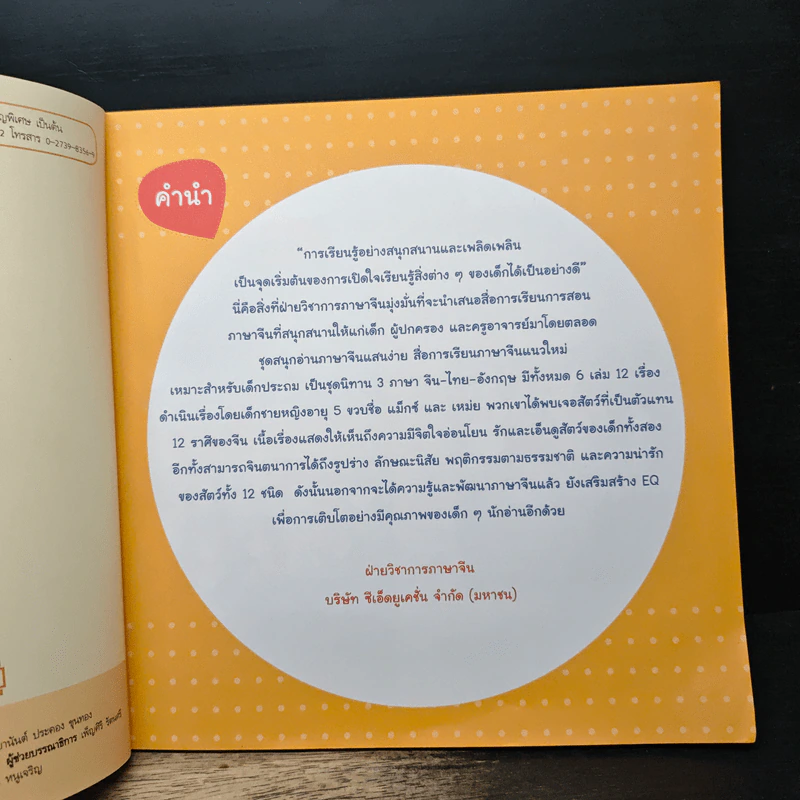 เป็นต้น
โทรสาร 0-2739-8356-
คำนำ
“การเรียนรู้อย่างสนุกสนานและเพลิดเพลิน
เป็นจุดเริ่มต้นของการเปิดใจเรียนรู้สิ่งต่าง ๆ ของเด็กได้เป็นอย่างดี”
นี่คือสิ่งที่ฝ่ายวิชาการภาษาจีนมุ่งมั่นที่จะนำเสนอสื่อการเรียนการสอน
ภาษาจีนที่สนุกสนานให้แก่เด็ก ผู้ปกครอง และครูอาจารย์มาโดยตลอด
ชุดสนุกอ่านภาษาจีนแสนง่าย สื่อการเรียนภาษาจีนแนวใหม่
เหมาะสำหรับเด็กประถม เป็นชุดนิทาน 3 ภาษา จีน-ไทย-อังกฤษ มีทั้งหมด 6 เล่ม 12 เรื่อง
ดำเนินเรื่องโดยเด็กชายหญิงอายุ 5 ขวบชื่อ แม็กซ์ และ เหม่ย พวกเขาได้พบเจอสัตว์ที่เป็นตัวแทน
12 ราศีของจีน เนื้อเรื่องแสดงให้เห็นถึงความมีจิตใจอ่อนโยน รักและเอ็นดูสัตว์ของเด็กทั้งสอง
อีกทั้งสามารถจินตนาการได้ถึงรูปร่าง ลักษณะนิสัย พฤติกรรมตามธรรมชาติ และความน่ารัก
ของสัตว์ทั้ง 12 ชนิด ดังนั้นนอกจากจะได้ความรู้และพัฒนาภาษาจีนแล้ว ยังเสริมสร้าง EQ
เพื่อการเติบโตอย่างมีคุณภาพของเด็ก ๆ นักอ่านอีกด้วย
ฝ่ายวิชาการภาษาจีน
บริษัท ซีเอ็ดยูเคชั่น จำกัด (มหาชน)
ประคอง ขุนทอง
ผู้ช่วยบรรณาธิการ เพ็ญศิริ
หนูเจริญ